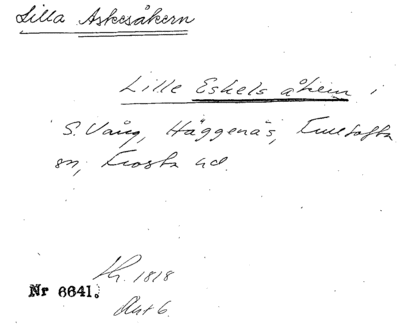 Lilla Askesåkern
Lille Eskels åkern i
S. Vång, Häggenäs, Fulltofta
sn, Frosta hd.
Sk. 1818
Nr 6641.
Akt 6.